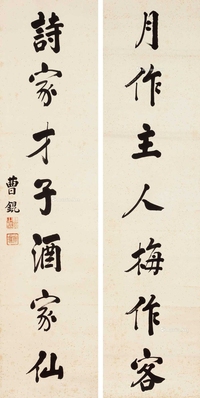 月作主人梅作客
詩家才子酒家仙
曹錕